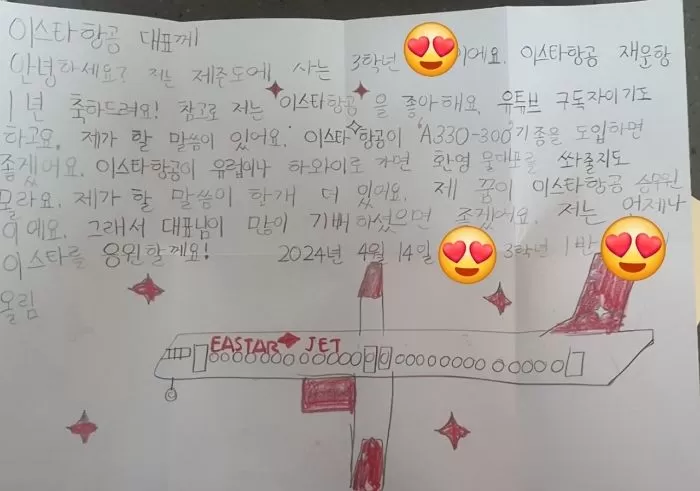 이스타항공 대표께
안녕하세요? 저는 제주도에 사는 3학년 이에요. 이스타항공 재운항
1년 축하드려요! 참고로 저는 이스타항공을 좋아해요. 유튜브 구독자이기도
하고요. 제가 할 말씀이 있어요. 이스타항공이 'A330-300'기종을 도입하면
좋겠어요. 이스타항공이 유럽이나 하와이로 가면 환영 물대포를 쏴줄지도
몰라요. 제가 할 말씀이 한개 더 있어요. 제 꿈이 이스타항공 승무원
이에요. 그래서 대표님이 많이 기뻐하셨으면 좋겠어요. 저는 어제나
이스타를 응원할께요! 2024년 4월 14일 3학년 1반
올림
EASTAR JET